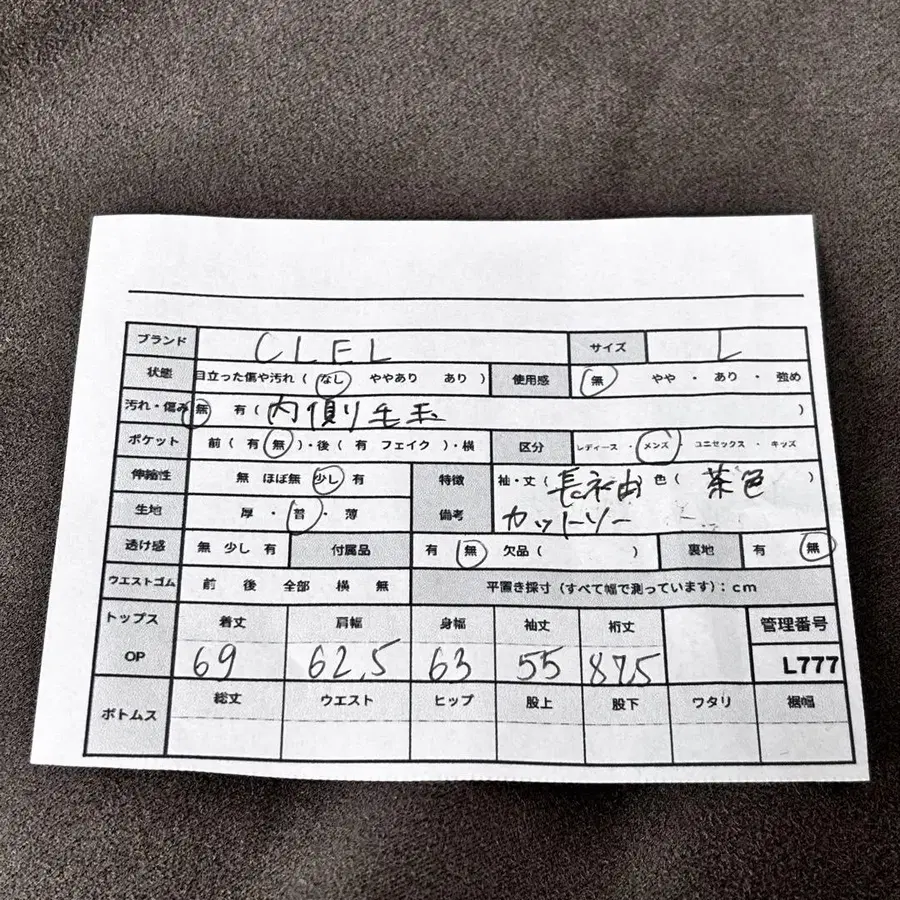 ブランド CLEL サイズ L
状態 目立った傷や汚れ ( なし ややあり あり ) 使用感 無 やや ・ あり ・ 強め
汚れ・傷み 無 有 ( 内側毛玉 )
ポケット 前 ( 有 無 ) ・後 ( 有 フェイク ) ・横 区分 レディース ・ メンズ ・ ユニセックス ・ キッズ
伸縮性 無 ほぼ無 少し 有 特徴 袖・丈 ( 長袖 ) 色 ( 茶色 )
生地 厚 ・ 普 ・ 薄 備考 カットソー
透け感 無 少し 有 付属品 有 無 欠品 ( ) 裏地 有 無
ウエストゴム 前 後 全部 横 無 平置き採寸 (すべて幅で測っています) : cm
トップス 着丈 肩幅 身幅 袖丈 裄丈 管理番号
OP 69 62.5 63 55 87.5 L777
ボトムス 総丈 ウエスト ヒップ 股上 股下 ワタリ 裾幅